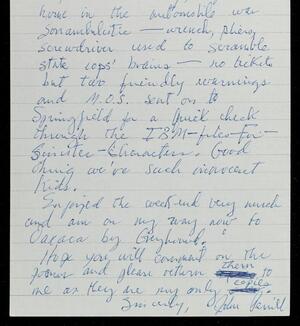 home in the automobile was
Somnambulistic — wrench, pliers,
screwdriver used to scramble
state cops' brains — no tickets
but two friendly warnings
and M.O.S. sent on to
Springfield for a quick check
through the IBM-files-For-
Sinister-Characters. Good
thing we've such innocent
kids.
Enjoyed the weekend very much
and am on my way now to
Oaxaca by Greyhound.
Hope you will comment on the
poems and please return them to
me as they are my only copies.
Sincerely, John